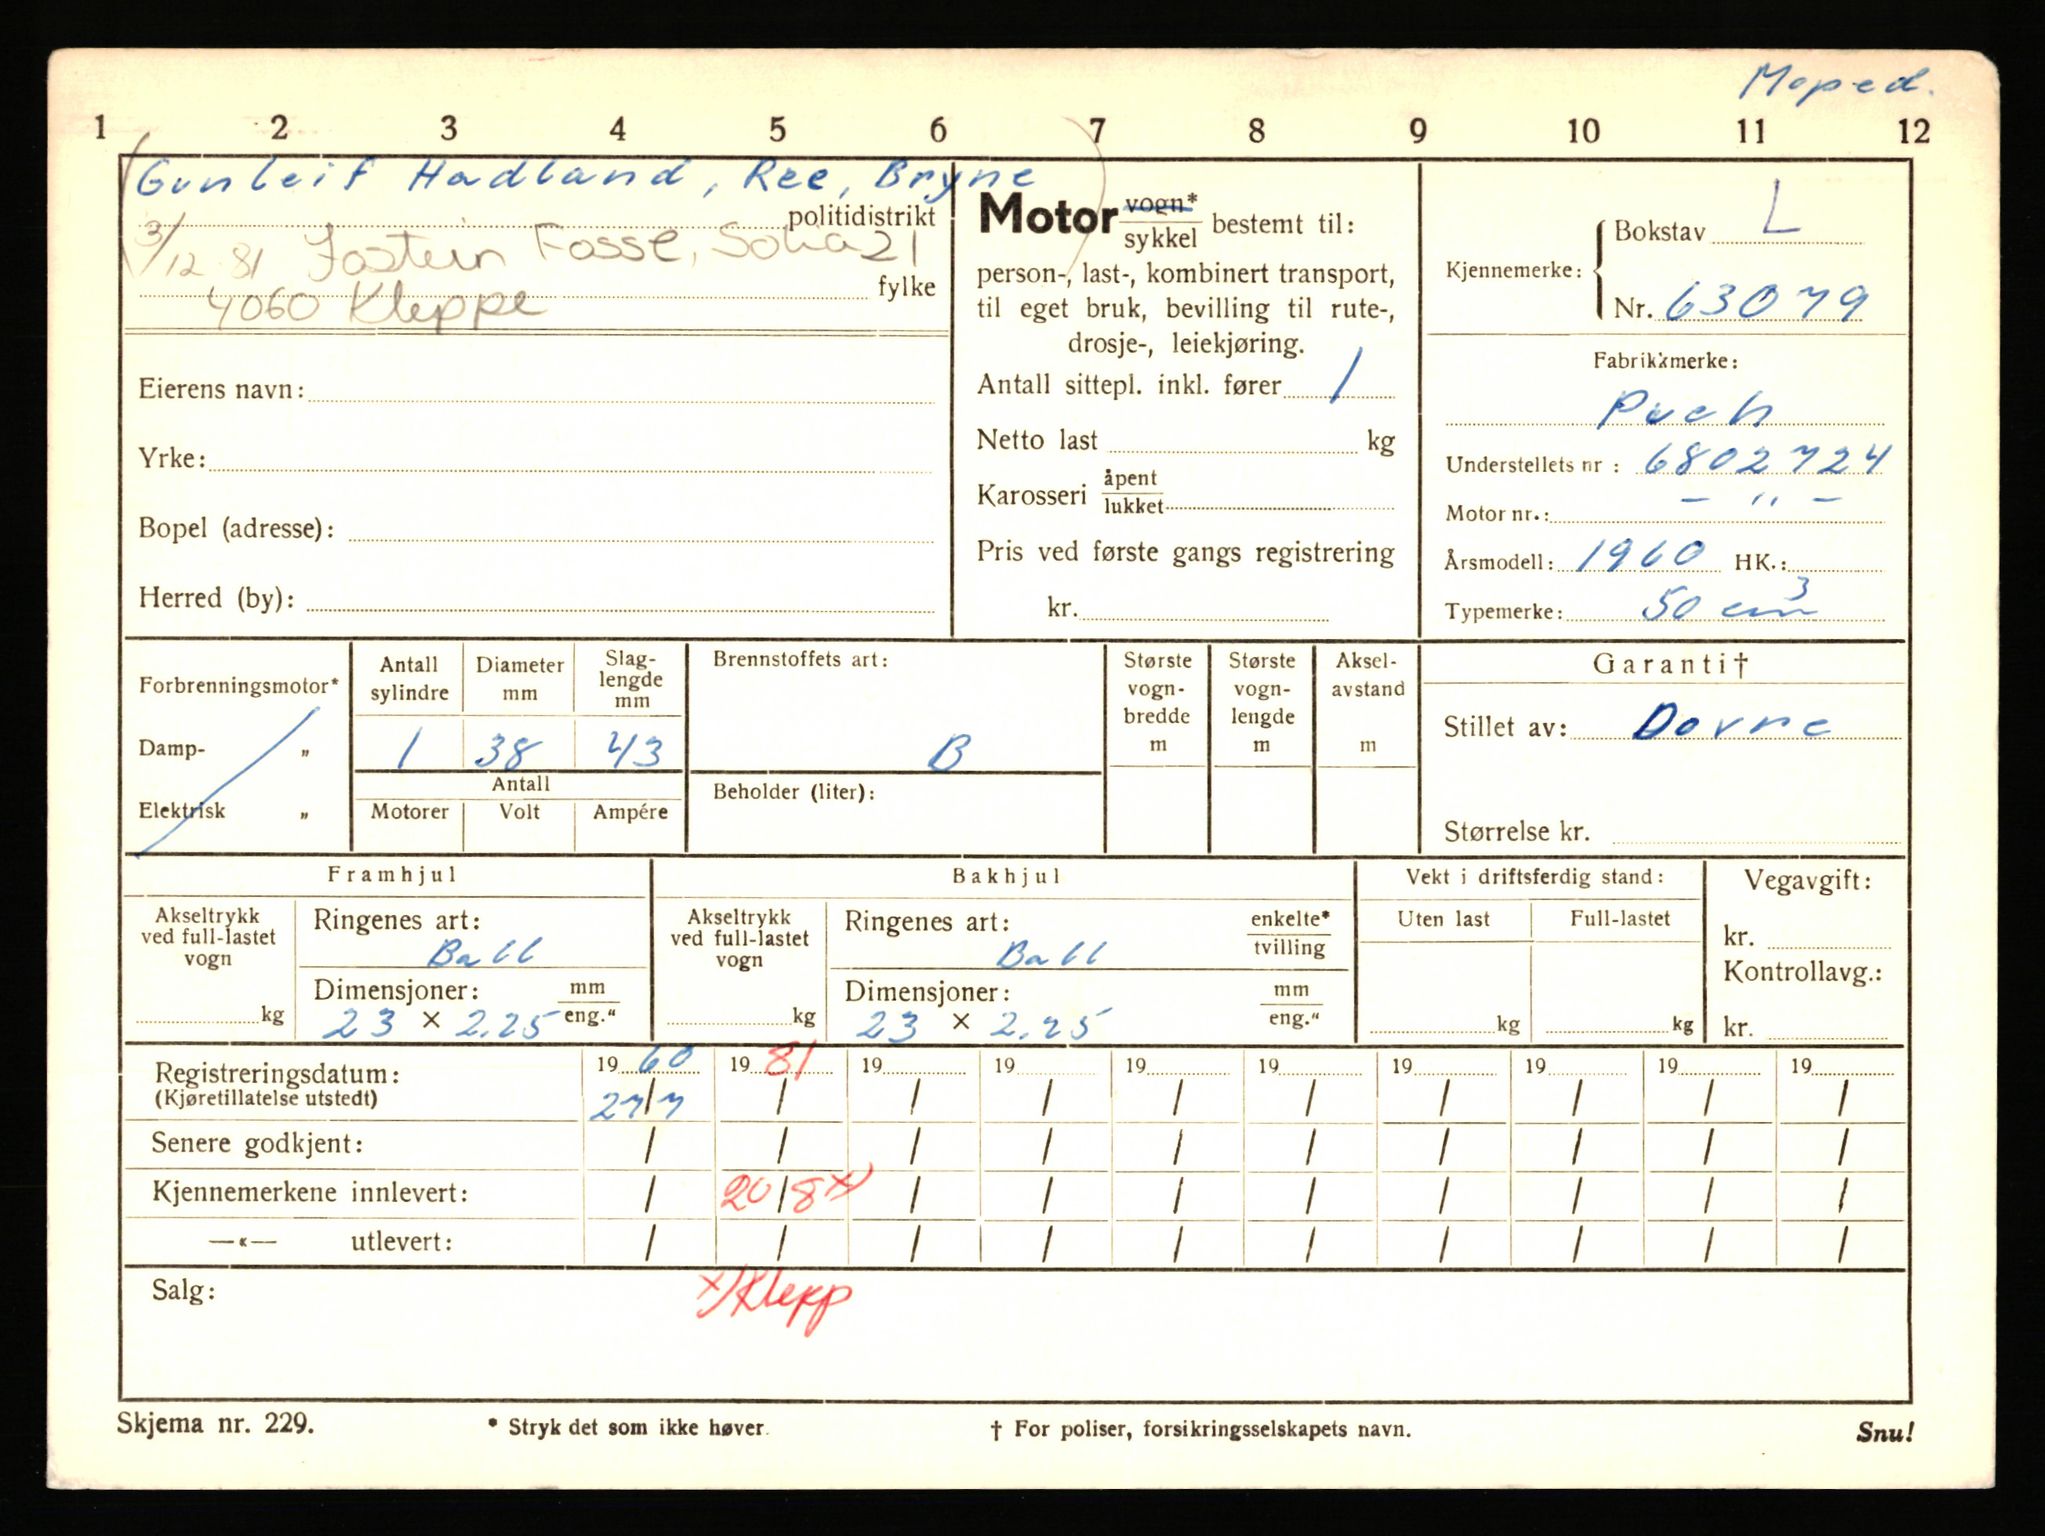 Moped.
1 2 3 4 5 6 7 8 9 10 11 12
Gunleif Hadland, Ree, Bryne
politidistrikt
3/12 81 Jostein Fosse, Solia 21
fylke
4060 Kleppe
Eierens navn:
Yrke:
Bopel (adresse):
Herred (by):
Motor vogn* / sykkel bestemt til:
person-, last-, kombinert transport,
til eget bruk, bevilling til rute-,
drosje-, leiekjøring.
Antall sittepl. inkl. fører 1
Netto last kg
Karosseri åpent / lukket
Pris ved første gangs registrering
kr.
Kjennemerke: Bokstav L
Nr. 63079
Fabrikkmerke:
Puch
Understellets nr : 6802724
Motor nr.: - " -
Årsmodell: 1960 HK.:
Typemerke: 50 cm³
Forbrenningsmotor*
Damp- "
Elektrisk "
Antall sylindre Diameter mm Slag-lengde mm
1 38 43
Antall
Motorer Volt Ampére
Brennstoffets art:
B
Beholder (liter):
Største vogn-bredde m
Største vogn-lengde m
Aksel-avstand m
Garanti†
Stillet av: Dovre
Størrelse kr.
Framhjul
Akseltrykk ved full-lastet vogn
kg
Ringenes art:
Ball
Dimensjoner: mm / eng."
23 × 2.25
Bakhjul
Akseltrykk ved full-lastet vogn
kg
Ringenes art: enkelte* / tvilling
Ball
Dimensjoner: mm / eng."
23 × 2.25
Vekt i driftsferdig stand:
Uten last Full-lastet
kg kg
Vegavgift:
kr.
Kontrollavg.:
kr.
Registreringsdatum: 19 60 19 81 19 19 19 19 19 19 19 19
(Kjøretillatelse utstedt) 27/7 / / / / / / / / /
Senere godkjent: / / / / / / / / / /
Kjennemerkene innlevert: / 20/8 x) / / / / / / / /
—«— utlevert: / / / / / / / / / /
Salg: x) Klepp
Skjema nr. 229. * Stryk det som ikke høver. † For poliser, forsikringsselskapets navn. Snu!